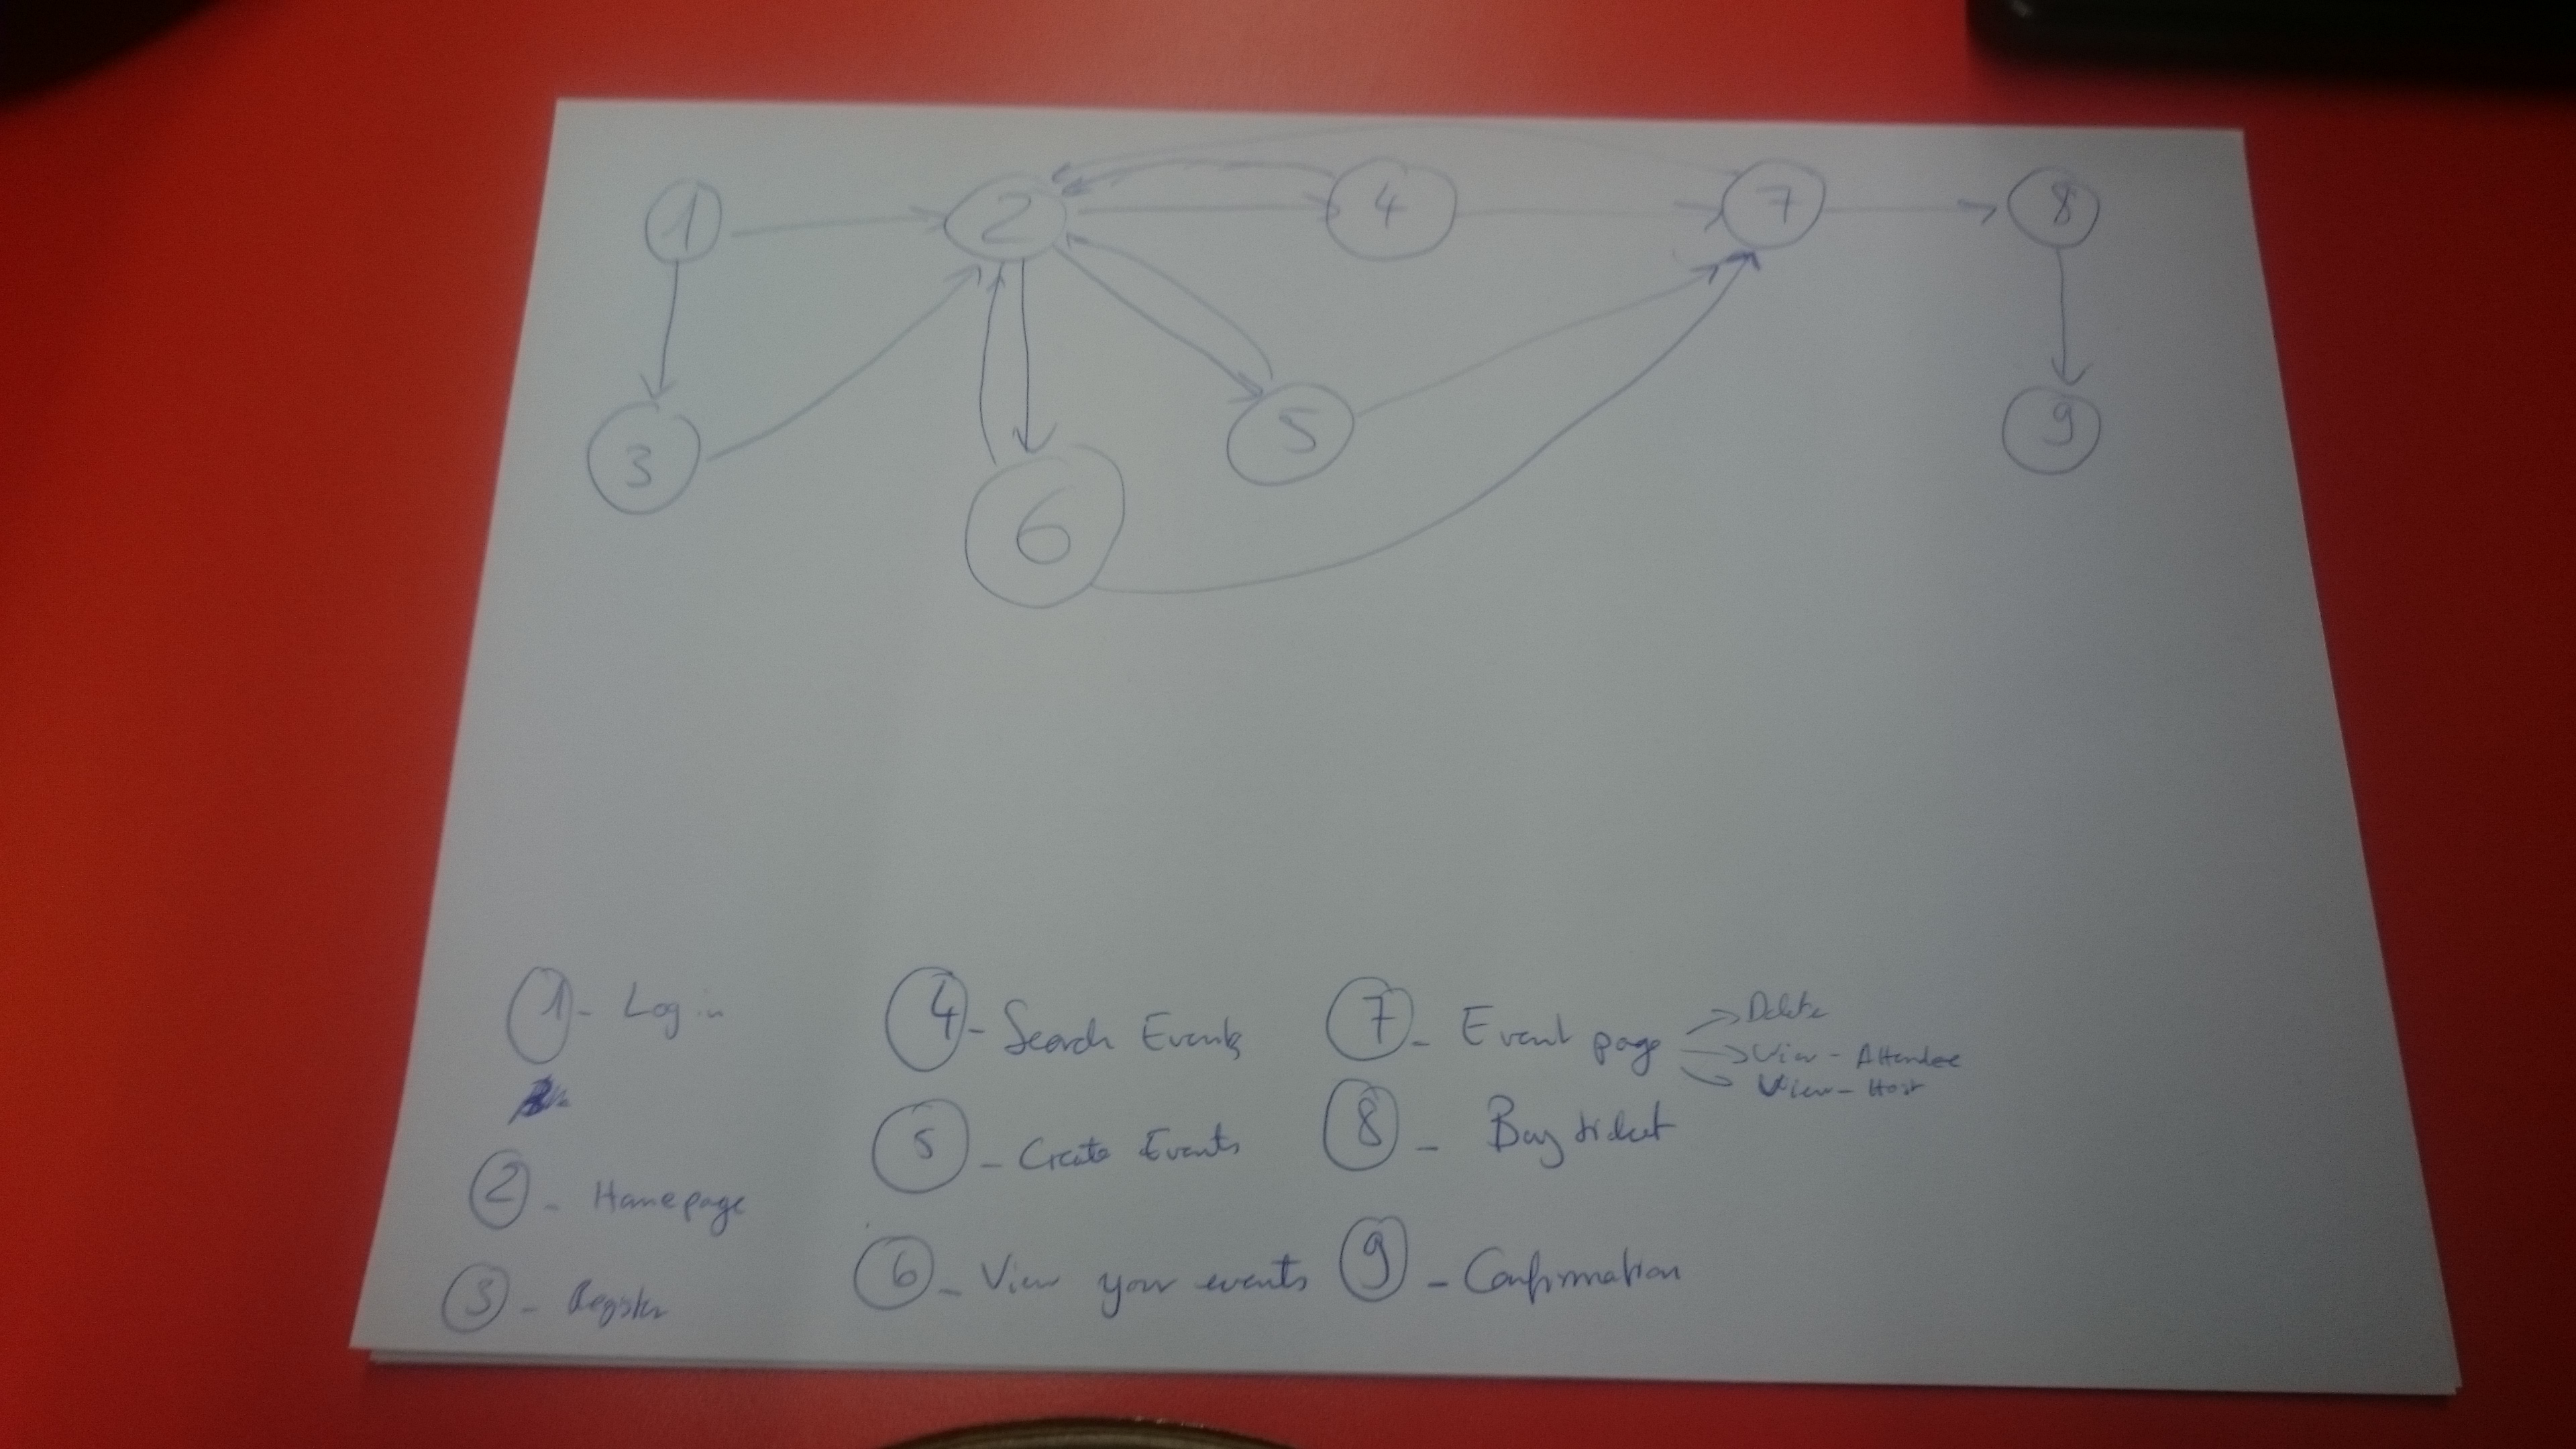 1
2
4
7
8
3
6
5
9
1 - Log in
2 - Homepage
3 - Register
4 - Search Events
5 - Create Events
6 - View your events
7 - Event page
Delete
View - Attendee
View - Host
8 - Buy ticket
9 - Confirmation